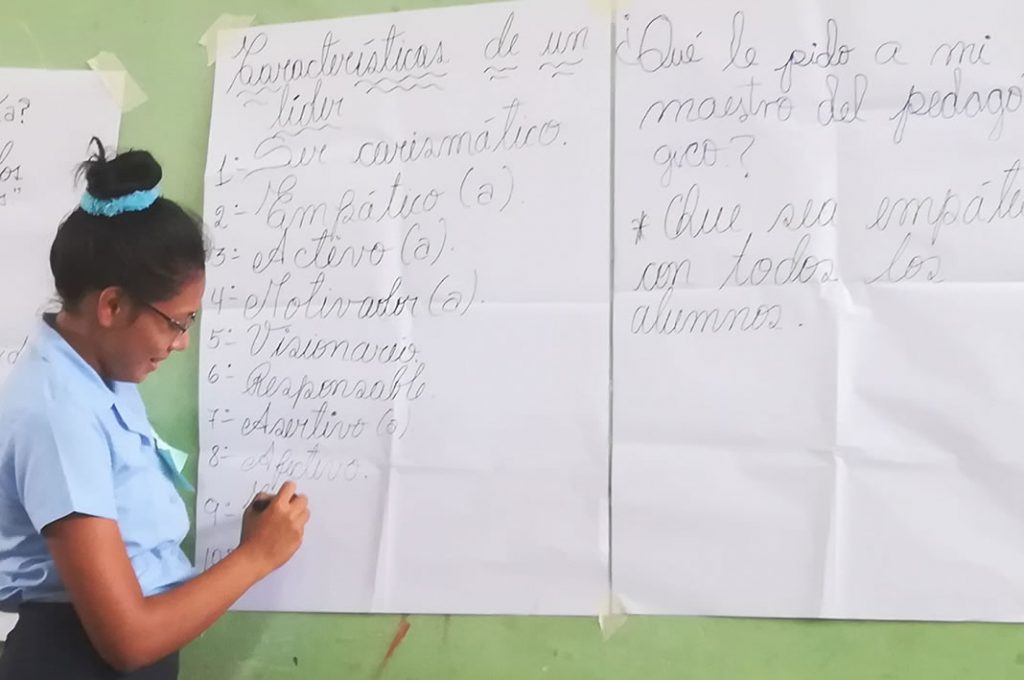 ía?
los
s"
Características de un
líder
1- Ser carismático.
2- Empático (a)
3- Activo (a).
4- Motivador (a).
5- Visionario.
6- Responsable
7- Asertivo (a)
8- Afectivo.
9-
10-
¿Qué le pido a mi
maestro del pedagó
gico?
* Que sea empáti
con todos los
alumnos.